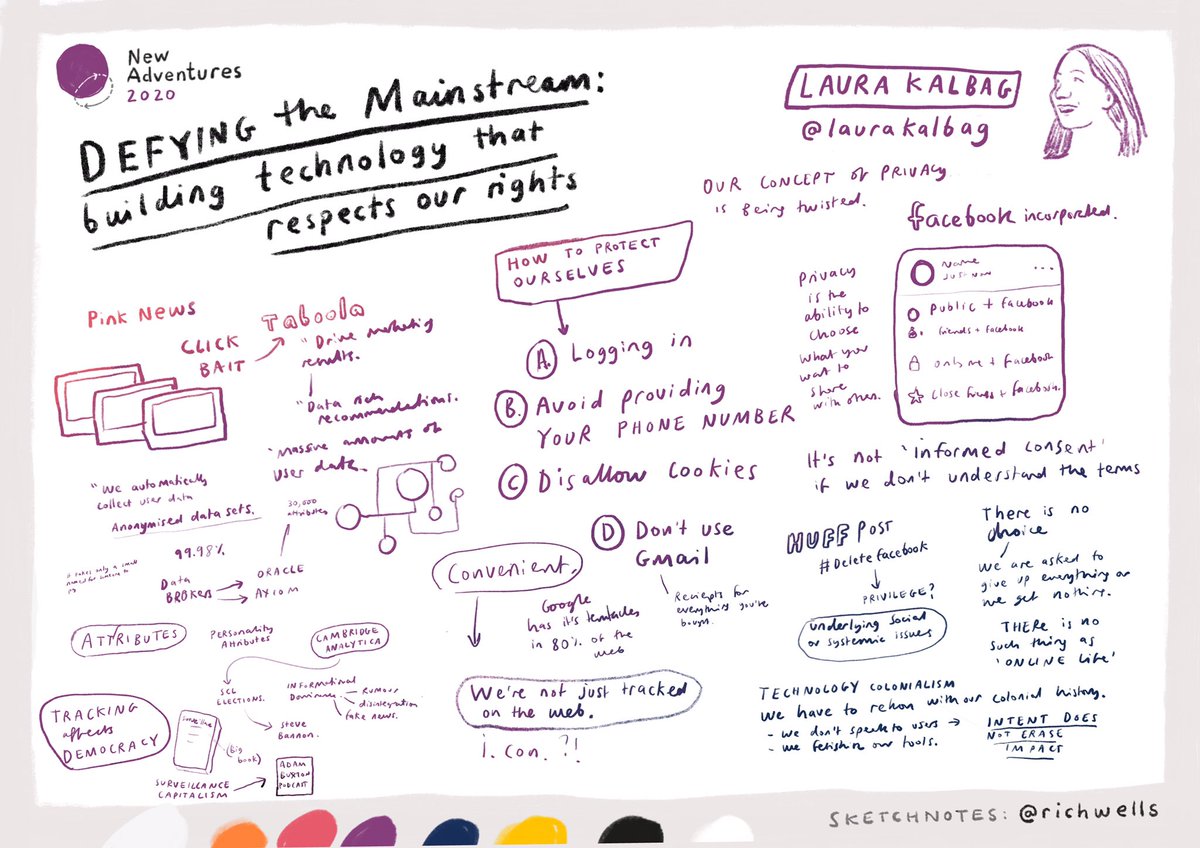 New
Adventures
2020
DEFYING the Mainstream:
building technology that
respects our rights
LAURA KALBAG
@laurakalbag
OUR CONCEPT OF PRIVACY
is Being twisted.
facebook incorporated.
Privacy
is the
ability to
choose
what you
want to
share
with others.
Name
JUST NOW
...
Public + facebook
friends + facebook
only me + facebook
Close friends + facebook.
It's not 'informed consent'
if we don't understand the terms
HOW TO PROTECT
OURSELVES
A. Logging in
B. Avoid providing
YOUR PHONE NUMBER
C Disallow Cookies
D Don't use
Gmail
Reciepts for
everything you've
bought.
Pink News
CLICK
BAIT
Taboola
"Drive marketing
results.
"Data rich
recommendations.
"Massive amounts of
user data.
30,000
attributes
"We automatically
collect user data
Anonymised data sets.
99.98%
it takes only a small
Data
BROKER
ORACLE
AXIOM
ATTRIBUTES
Personality
Attributes
CAMBRIDGE
ANALYTICA
SCL
ELECTIONS.
INFORMATIONAL
Dominance
RUMOUR
disintegration
fake news.
Steve
Bannon.
TRACKING
affects
DEMOCRACY
Surveillance
(Big
book)
SURVEILLANCE
CAPITALISM
ADAM
BUXTON
PODCAST
Convenient.
Google
has it's tentacles
in 80% of the
web
We're not just tracked
on the web.
i. con. ?!
HUFF POST
#Deletefacebook
PRIVILEGE?
underlying social
or systemic issues
There is no
choice
we are asked to
give up everything or
we get nothing.
THERE is no
such thing as
'ONLINE Life'
TECHNOLOGY COLONIALISM
We have to rekon with our colonial history.
- we don't speak to users
- we fetishise our tools.
INTENT DOES
NOT ERASE
IMPACT
SKETCHNOTES: @richwells